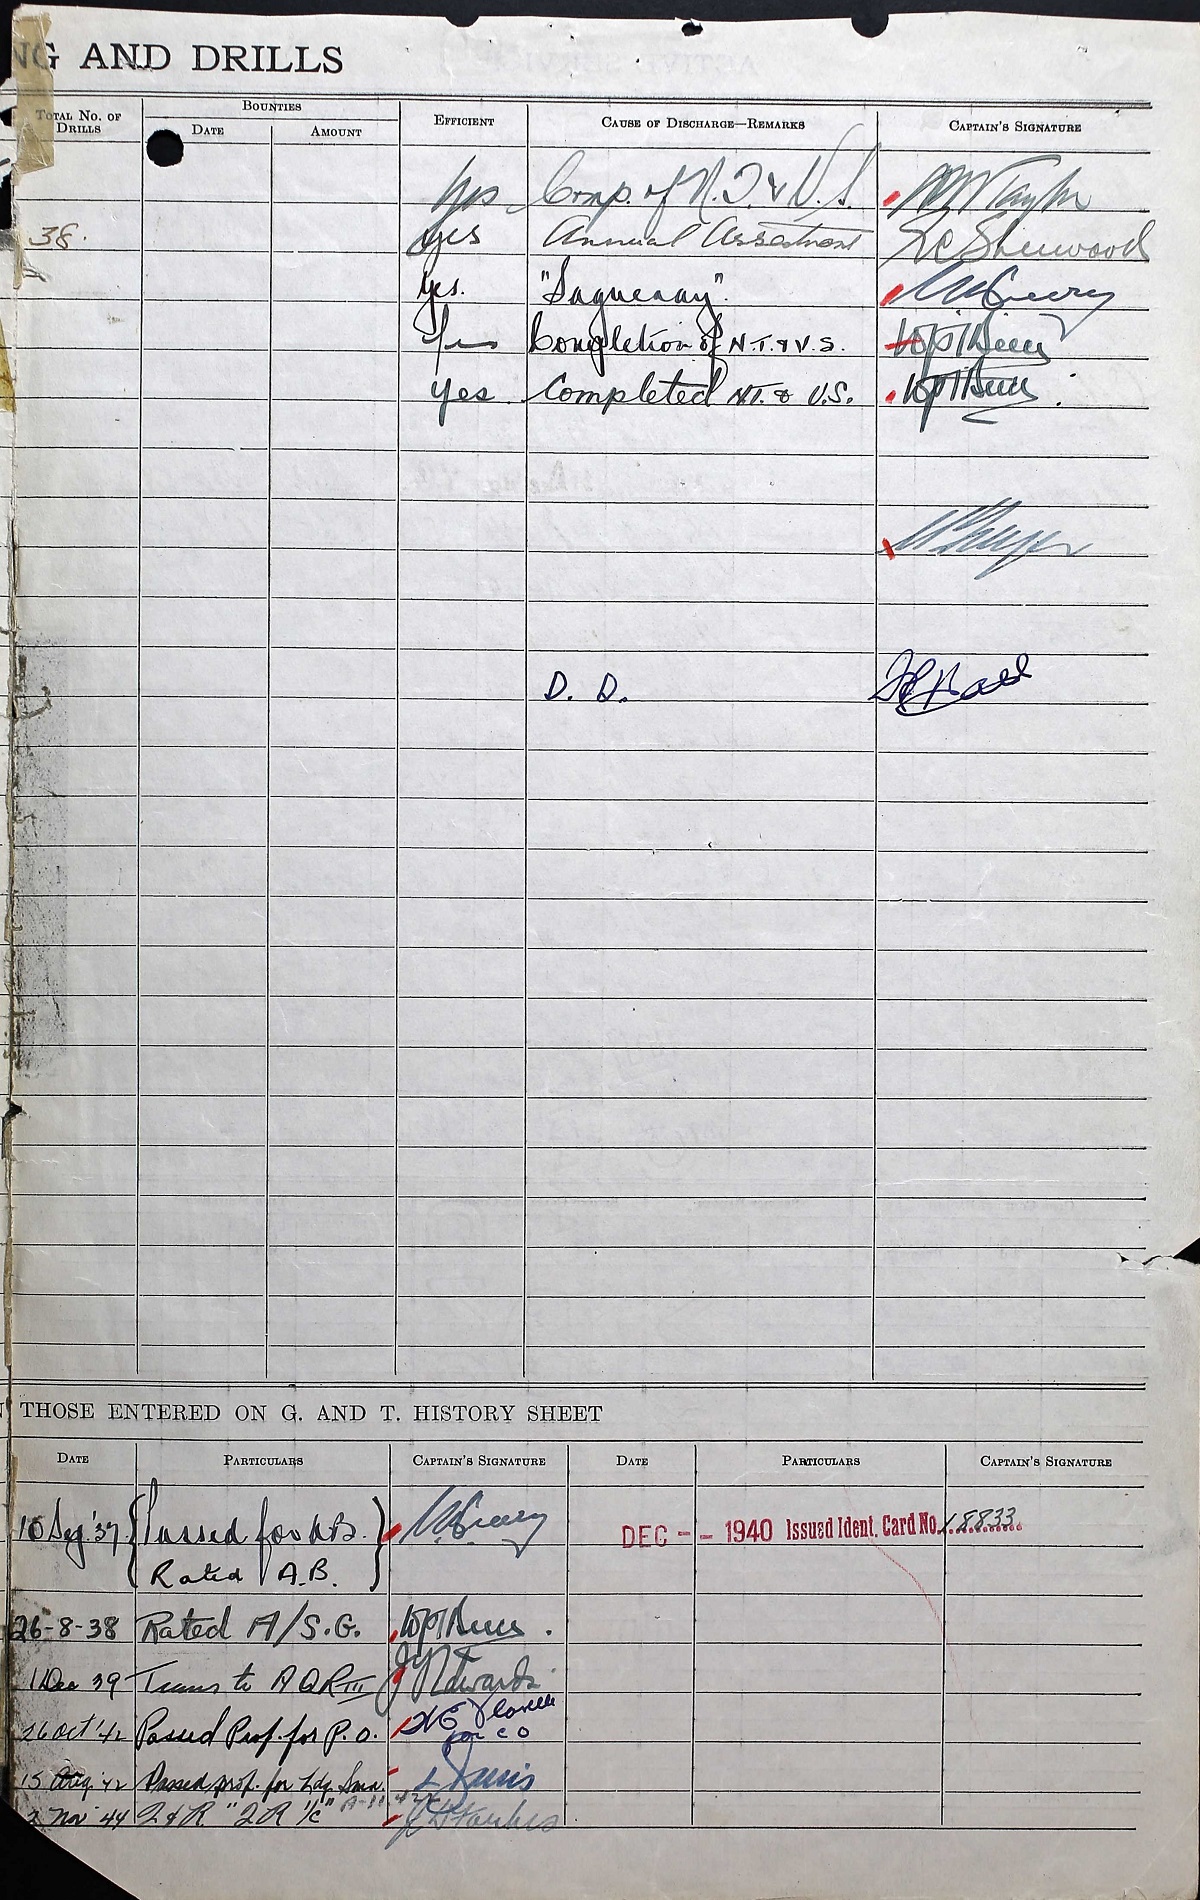 NG AND DRILLS
TOTAL NO. OF DRILLS BOUNTIES EFFICIENT CAUSE OF DISCHARGE—REMARKS CAPTAIN'S SIGNATURE
DATE AMOUNT
Yes Comp. of N.T. & V.S. Taylor
38. Yes Annual Assessment Sherwood
Yes. "Saguenay".
Yes Completion of N.T. & V.S.
Yes Completed N.T. & V.S.
D. D.
THOSE ENTERED ON G. AND T. HISTORY SHEET
DATE PARTICULARS CAPTAIN'S SIGNATURE DATE PARTICULARS CAPTAIN'S SIGNATURE
10 '37 Passed for A.B. DEC -- 1940 Issued Ident. Card No. 18833
Rated A.B.
26-8-38 Rated A/S.G.
1 Dec 39 Trans to AQR III Edwards
26 Oct '42 Passed Prof. for P.O.
for CO
15 Aug '42 Passed prof. for Ldg. Smn.
Nov '44 "QR 1/c"